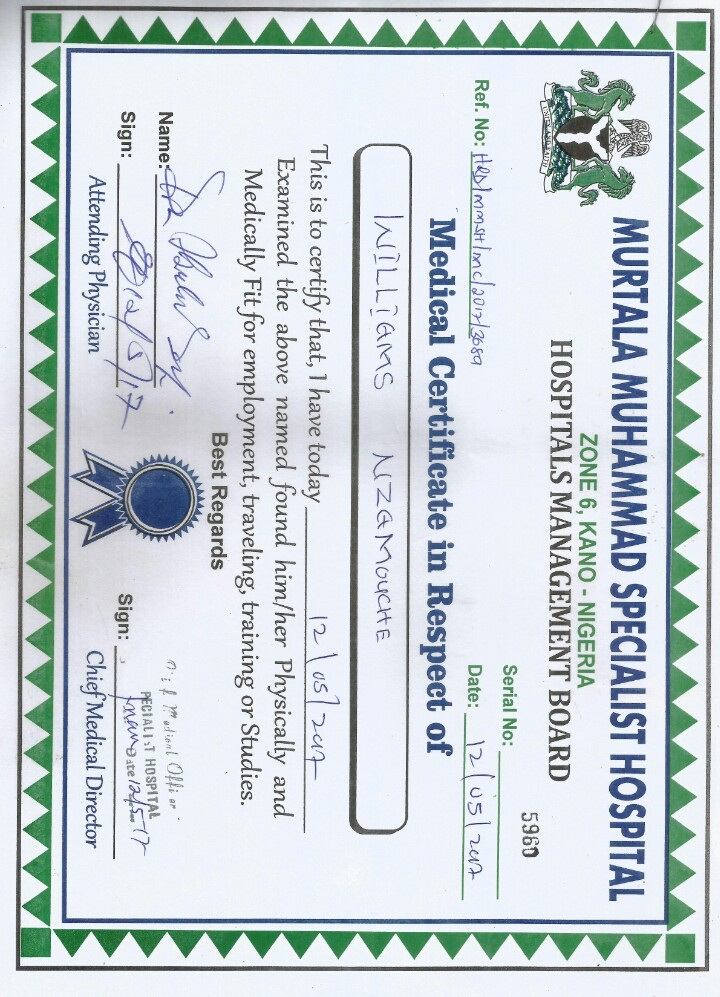 MURTALA MUHAMMAD SPECIALIST HOSPITAL
ZONE 6, KANO - NIGERIA
HOSPITALS MANAGEMENT BOARD
5960
Serial No:
Ref. No: HRD/MMSH/MC/2017/3089
Date: 12/05/2017
Medical Certificate in Respect of
WILLIAMS NZAMOUCHE
This is to certify that, I have today 12/05/2017
Examined the above named found him/her Physically and
Medically Fit for employment, traveling, training or Studies.
Best Regards
Name:
Sign: 12/5/17
Attending Physician
Medical Officer
SPECIALIST HOSPITAL
Date 12/5-17
Sign:
Chief Medical Director